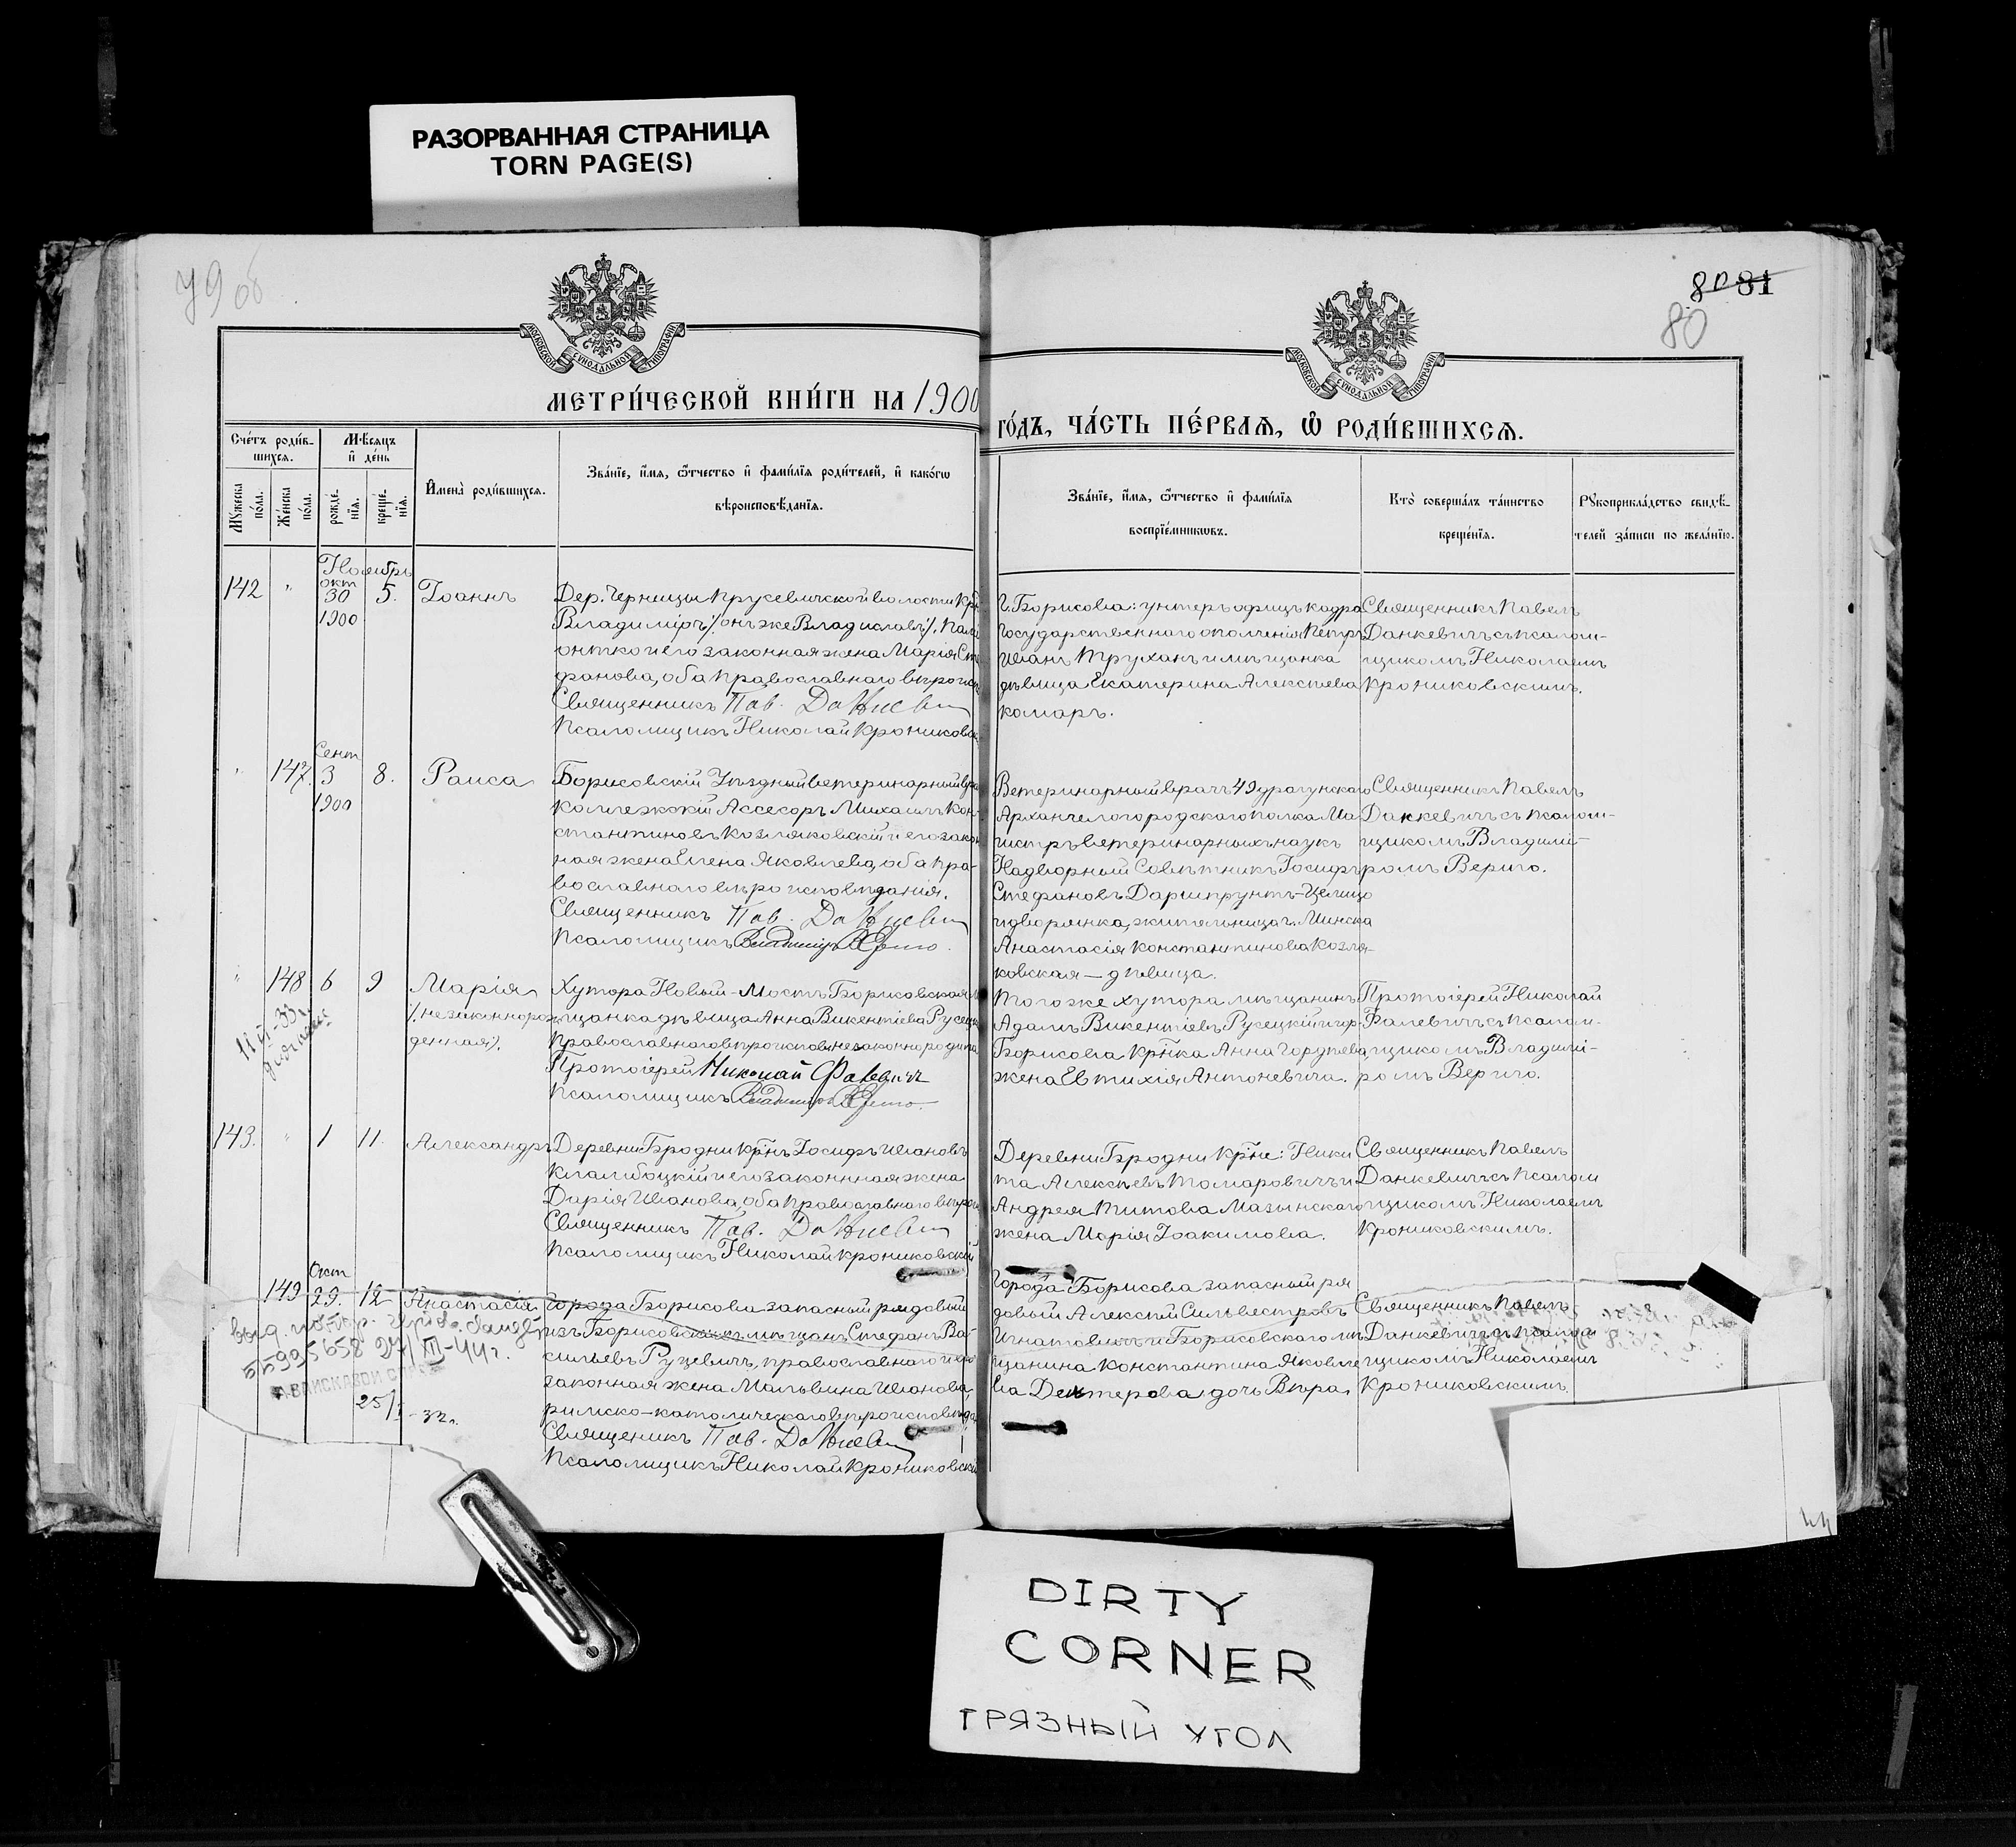 РАЗОРВАННАЯ СТРАНИЦА
TORN PAGE(S)
79 об
80 81
80
МОСКОВСКОЙ СѴНОДАЛЬНОЙ ТИПОГРАФІИ
МОСКОВСКОЙ СѴНОДАЛЬНОЙ ТИПОГРАФІИ
МЕТРИ́ЧЕСКОЙ КНИ́ГИ НА 1900
ГО́ДЪ, ЧА́СТЬ ПЕ́РВАѦ, Ѽ РОДИ́ВШИХСѦ.
Сче́тъ роди́в-
шихсѧ.
Мꙋжеска по́ла.
Же́нска по́ла.
Мѣ́сѧцъ
и҆ де́нь
рожде́-
нїѧ.
креще́-
нїѧ.
И҆мена̀ роди́вшихсѧ.
Зва́нїе, и҆́мѧ, ѻ҆́тчество и҆ фами́лїѧ роди́телей, и҆ како́гѡ
вѣроисповѣ́данїѧ.
Зва́нїе, и҆́мѧ, ѻ҆́тчество и҆ фами́лїѧ
воспрїе́мникѡвъ.
Кто̀ соверша́лъ та́инство
креще́нїѧ.
Рꙋкоприкла́дство свидѣ́-
телей за́писи по жела́нїю.
Ноябрь
142 " окт 30 1900 5. Іоаннъ
Дер. Черницы Прусевичской волости кр
Владиміръ /: онъ же Владиславъ /.
и его законная жена Марія Сте
фанова, оба православнаго вѣроисп
Священникъ Пав. Данкевич
Псаломщикъ Николай Крониковск
Г. Борисова: унтеръ офиц. кадра
Государственнаго ополченія Петръ
Иванъ Труханъ и мѣщанка
дѣвица Екатерина Алексѣева
Комаръ.
Священникъ Павелъ
Данкевичъ съ псалом-
щикомъ Николаемъ
Крониковскимъ.
" 147. Сент 3 1900 8. Раиса
Борисовскій Уѣздный ветеринарный вра
Коллежскій Ассесоръ Михаилъ Кон-
стантиновъ Козляковскій и его закон
ная жена Елена Яковлева, оба пра-
вославнаго вѣроисповѣданія.
Священникъ Пав. Данкевич
Псаломщикъ Владиміръ Вериго.
Ветеринарный врачъ 49 драгунскаго
Архангелогородскаго полка Ма
гистръ ветеринарныхъ наукъ
Надворный Совѣтникъ Іосифъ
Стефановъ
и дворянка, жительница г. Минска
Анастасія Константинова Козля-
ковская — дѣвица.
Священникъ Павелъ
Данкевичъ съ псалом-
щикомъ Владимі-
ромъ Вериго.
" 148 6 9 Марія
/: незаконнорож-
денная /.
11 II-33 г.
Хутора Новый-Мостъ Борисовская м
щанка дѣвица Анна Викентіева Русецк
православнаго вѣроиспов. незаконнородила
Протоіерей Николай Фалевичъ
Псаломщикъ Владиміръ Вериго.
Того же хутора мѣщанинъ
Адамъ Викентіевъ Русецкій и гор.
Борисова кр̃нка Анна Гордѣева,
жена Евтихія Антоневича.
Протоіерей Николай
Фалевичъ съ псалом-
щикомъ Владимі-
ромъ Вериго.
143. " 1 11. Александръ
Деревни Бродни кр̃нъ Іосифъ Ивановъ
Кламбоцкій и его законная жена
Дарія Иванова, оба православнаго вѣрои
Священникъ Пав. Данкевич
Псаломщикъ Николай Крониковскій
Деревни Бродни кр̃не: Ники
та Алексѣевъ Томаровичъ и
Андрея Титова Мазынскаго
жена Марія Іоакимова.
Священникъ Павелъ
Данкевичъ съ псалом
щикомъ Николаемъ
Крониковскимъ.
149 Окт 29. 12 Анастасія
55995658 27/III-44 г.
25/I-32 г.
Города Борисова запасный рядовый
изъ Борисовскихъ мѣщанъ Стефанъ Ва-
сильевъ Руцевичъ, православнаго и его
законная жена Мальвина Иванова,
римско-католическаго вѣроисповѣд
Священикъ Пав. Данкевич
Псаломщикъ Николай Крониковскій
Города Борисова запасный ря
довый Алексѣй Сильвестровъ
Игнатовичъ и Борисовскаго мѣ
щанина Константина Яковле
ва Дектерова дочь Вѣра.
Священникъ Павелъ
Данкевичъ съ псалом
щикомъ Николаемъ
Крониковскимъ.
DIRTY
CORNER
ГРЯЗНЫЙ УГОЛ